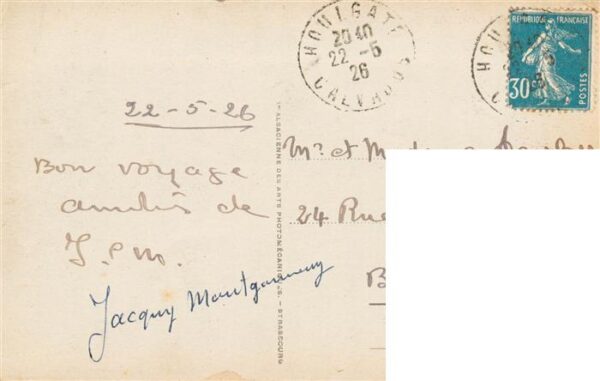 HOULGATE
20 40
22 - 5
26
CALVADOS
REPUBLIQUE FRANÇAISE
30
POSTES
22-5-26
Bon voyage
amitiés de
Jacquy Montgomery
Mr et
24 Rue
ALSACIENNE DES ARTS PHOTOMÉCANIQUES. - STRASBOURG